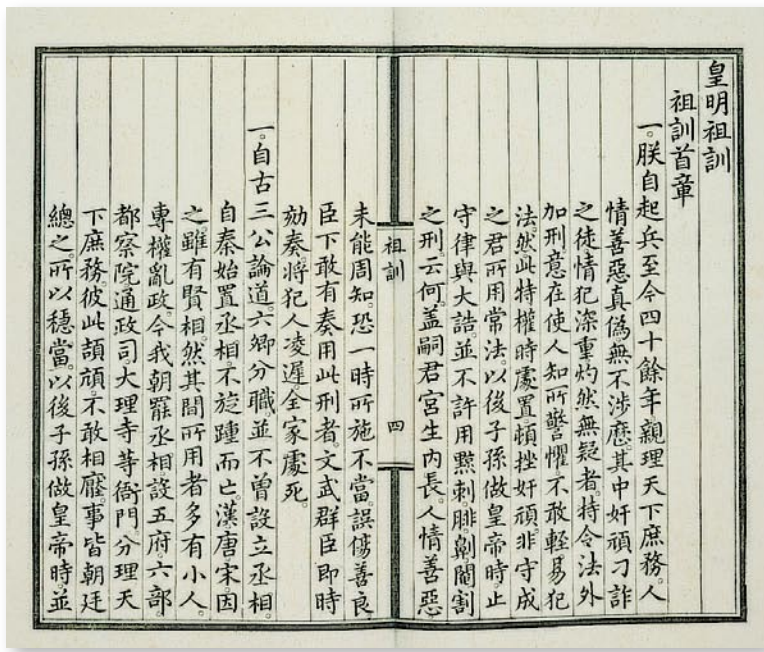 皇明祖訓
祖訓首章
一。朕自起兵至今四十餘年。親理天下庶務。人
情善惡真偽。無不涉歷。其中奸頑刁詐
之徒。情犯深重。灼然無疑者。特令法外
加刑。意在使人知所警懼。不敢輕易犯
法。然此特權時處置。頓挫奸頑。非守成
之君所用常法。以後子孫做皇帝時。止
守律與大誥。並不許用黥刺。腓。劓。閹。割
之刑。云何。蓋嗣君宮生內長。人情善惡
祖訓
四
未能周知。恐一時所施不當。誤傷善良。
臣下敢有奏用此刑者。文武群臣即時
劾奏。將犯人凌遲。全家處死。
一。自古三公論道。六卿分職。並不曾設立丞相。
自秦始置丞相。不旋踵而亡。漢唐宋因
之。雖有賢相。然其間所用者多有小人。
專權亂政。今我朝罷丞相。設五府。六部。
都察院。通政司。大理寺等衙門。分理天
下庶務。彼此頡頏。不敢相壓。事皆朝廷
總之。所以穩當。以後子孫做皇帝時。並